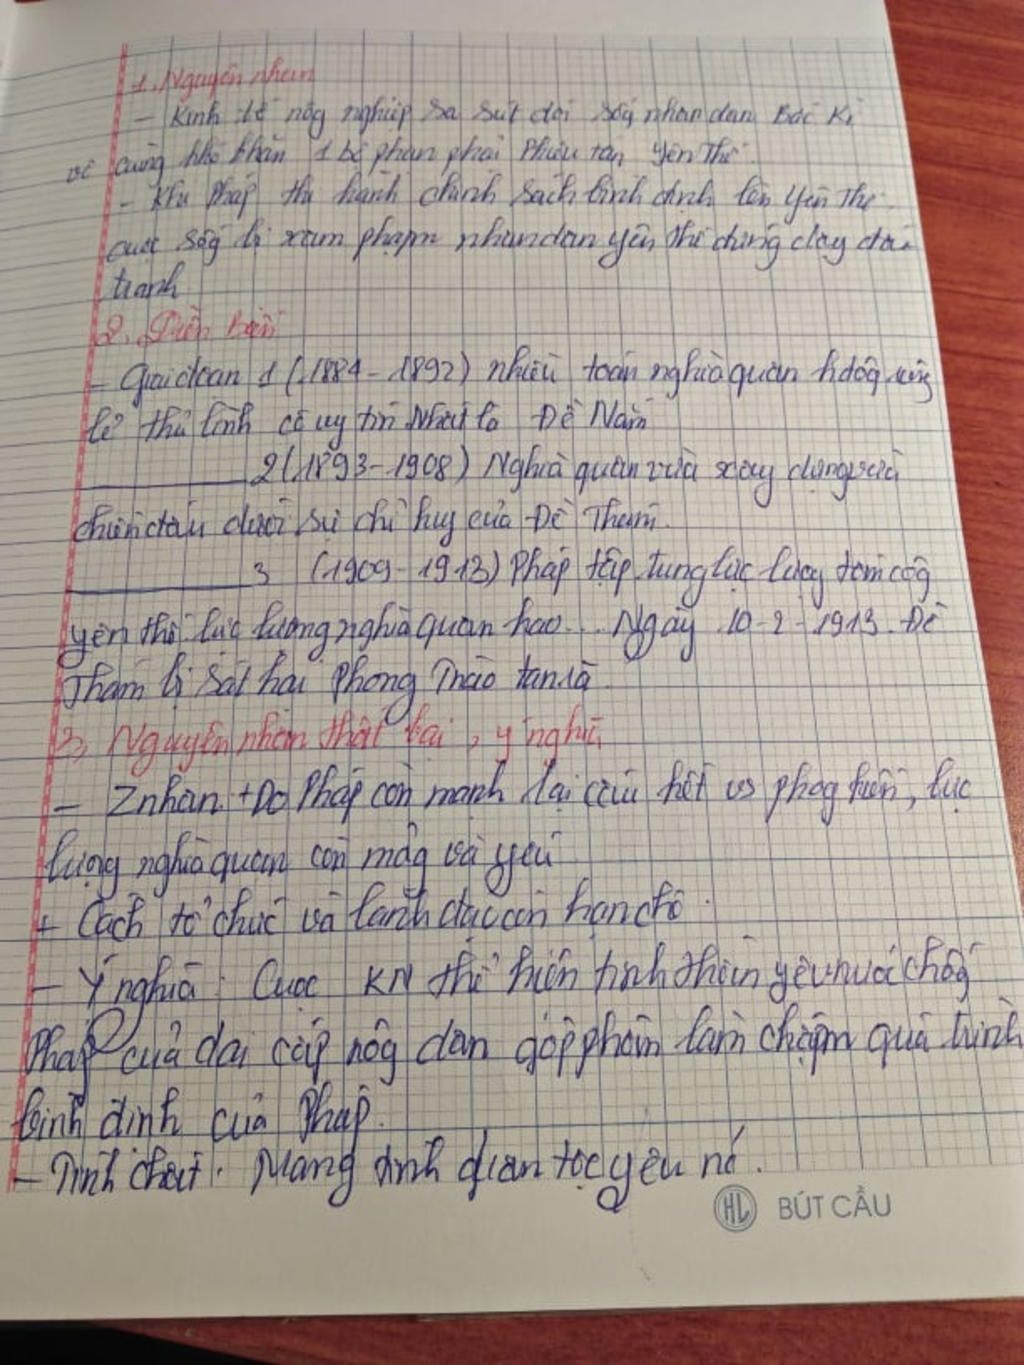 1. Nguyên nhân
- Kinh tế nôg nghiệp sa sút đời sôg nhân dân Bắc Kì
vô cùng khó khăn 1 bộ phận phải Phiêu tán Yên Thế.
- Khi Pháp thi hành chính sách bình định lên Yên Thế
cuộc sôg bị xâm phạm nhân dân yên thế đứng dậy đấu
tranh
2. Diễn biến
- Giai đoạn 1 (1884 - 1892) nhiều toán nghĩa quân hđôg riêg
lẻ thủ lĩnh có uy tín Nhất là Đề Nắm
2 (1893 - 1908) Nghĩa quân vừa xây dựng vừa
chiến đấu dưới sự chỉ huy của Đề Thám.
3 (1909 - 1913) Pháp tập tung lực lượg tấn côg
yên thế lực lượng nghĩa quân hao... Ngày 10-2-1913 Đề
Thám bị sát hại Phong Trào tan rã
3, Nguyên nhân thất bại, ý nghĩa
- Znhân + Do Pháp còn mạnh lại câu kết vs phog kiến, lực
lượng nghĩa quân còn mỏg và yếu
+ Cách tổ chức và lãnh đạo còn hạn chế.
- Ý nghĩa: Cuộc KN thể hiện tinh thần yêu nước chốg
Pháp của dai cấp nôg dân góp phần làm chậm quá trình
bình định của Pháp.
- Tính chất: Mang tính dân tộc yêu nc.
HL BÚT CẦU